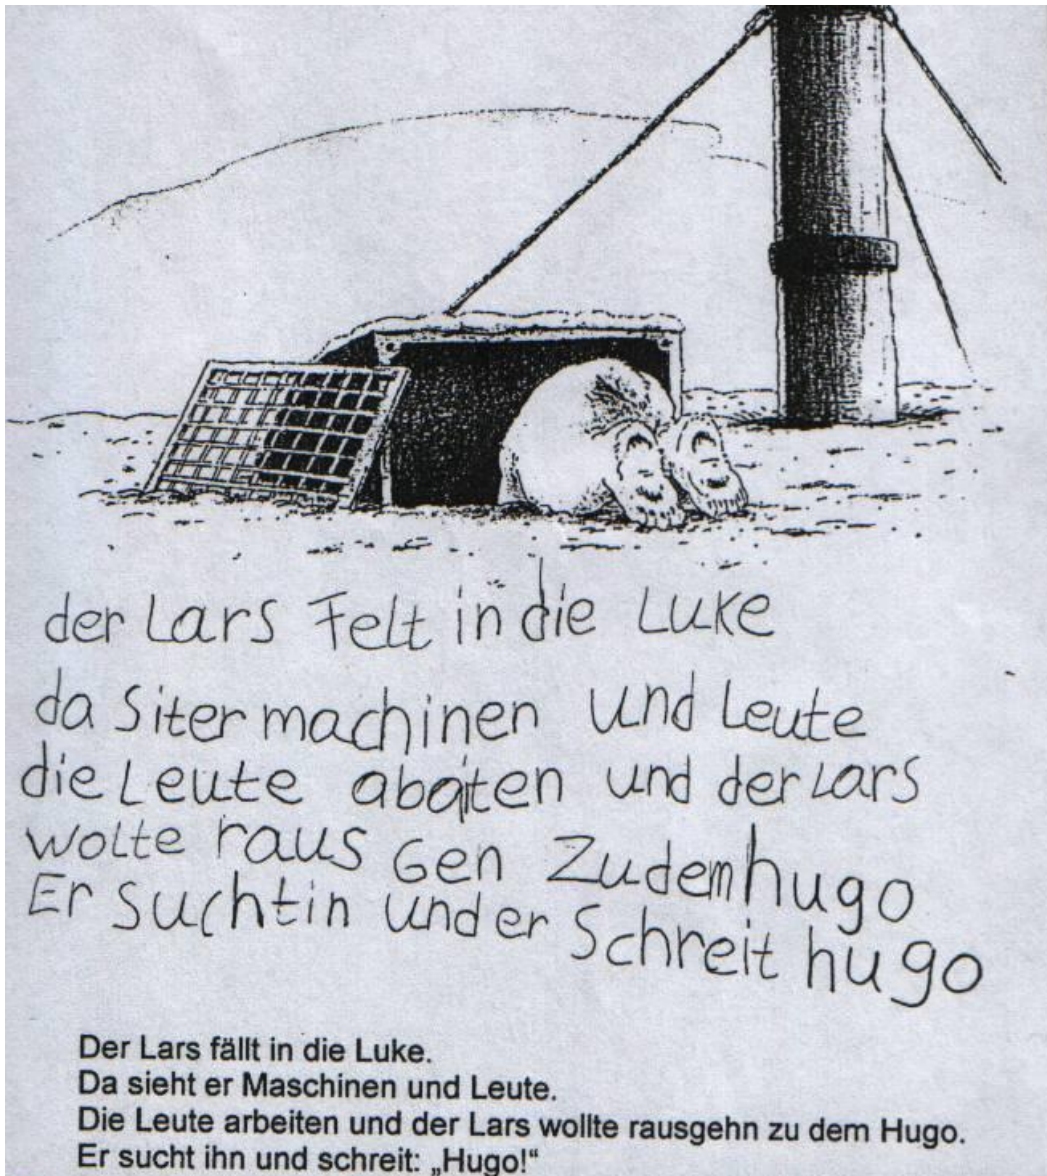 der Lars Felt in die Luke
da Siter machinen und Leute
die Leute abaiten und der Lars
wolte raus Gen Zudemhugo
Er Suchtin und er Schreit hugo
Der Lars fällt in die Luke.
Da sieht er Maschinen und Leute.
Die Leute arbeiten und der Lars wollte rausgehn zu dem Hugo.
Er sucht ihn und schreit: „Hugo!“